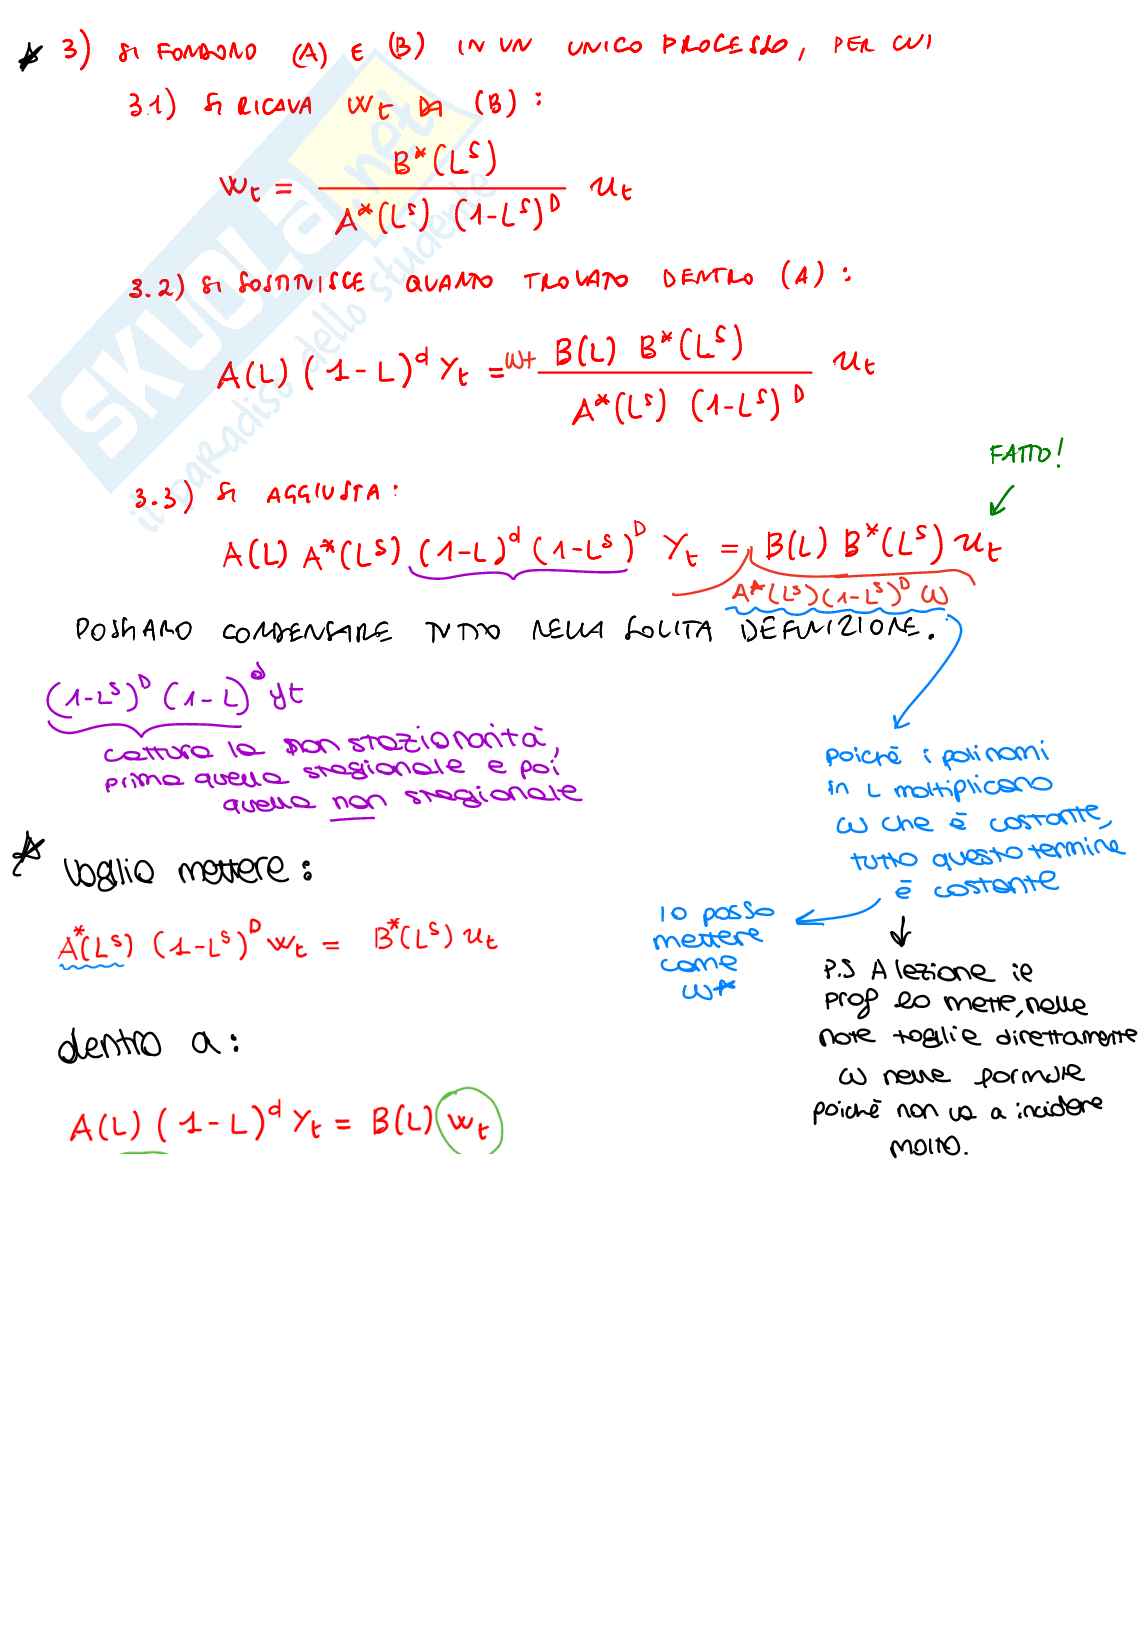 3) SI FONDONO (A) E (B) IN UN UNICO PROCESSO, PER CUI
3.1) SI RICAVA Wt DA (B):
Wt = B*(L^S) / A*(L^S) (1-L^S)^D ut
3.2) SI SOSTITUISCE QUANTO TROVATO DENTRO (A):
A(L) (1-L)^d Yt = ω+ B(L) B*(L^S) / A*(L^S) (1-L^S)^D ut
FATTO!
3.3) SI AGGIUSTA:
A(L) A*(L^S) (1-L)^d (1-L^S)^D Yt = B(L) B*(L^S) ut
A*(L^S)(1-L^S)^D ω
POSSIAMO CONDENSARE TUTTO NELLA SOLITA DEFINIZIONE.
(1-L^S)^D (1-L)^d yt
cattura la non stazionarità,
prima quella stagionale e poi
quella non stagionale
poichè i polinomi
in L moltiplicano
ω che è costante,
tutto questo termine
è costante
lo posso
mettere
come
ω*
P.S A lezione il
prof lo mette, nelle
note toglie direttamente
ω nelle formule
poichè non va a incidere
molto.
Voglio mettere:
A*(L^S) (1-L^S)^D wt = B*(L^S) ut
dentro a:
A(L) (1-L)^d Yt = B(L) wt
SKUOLA.net
il paradiso dello studente